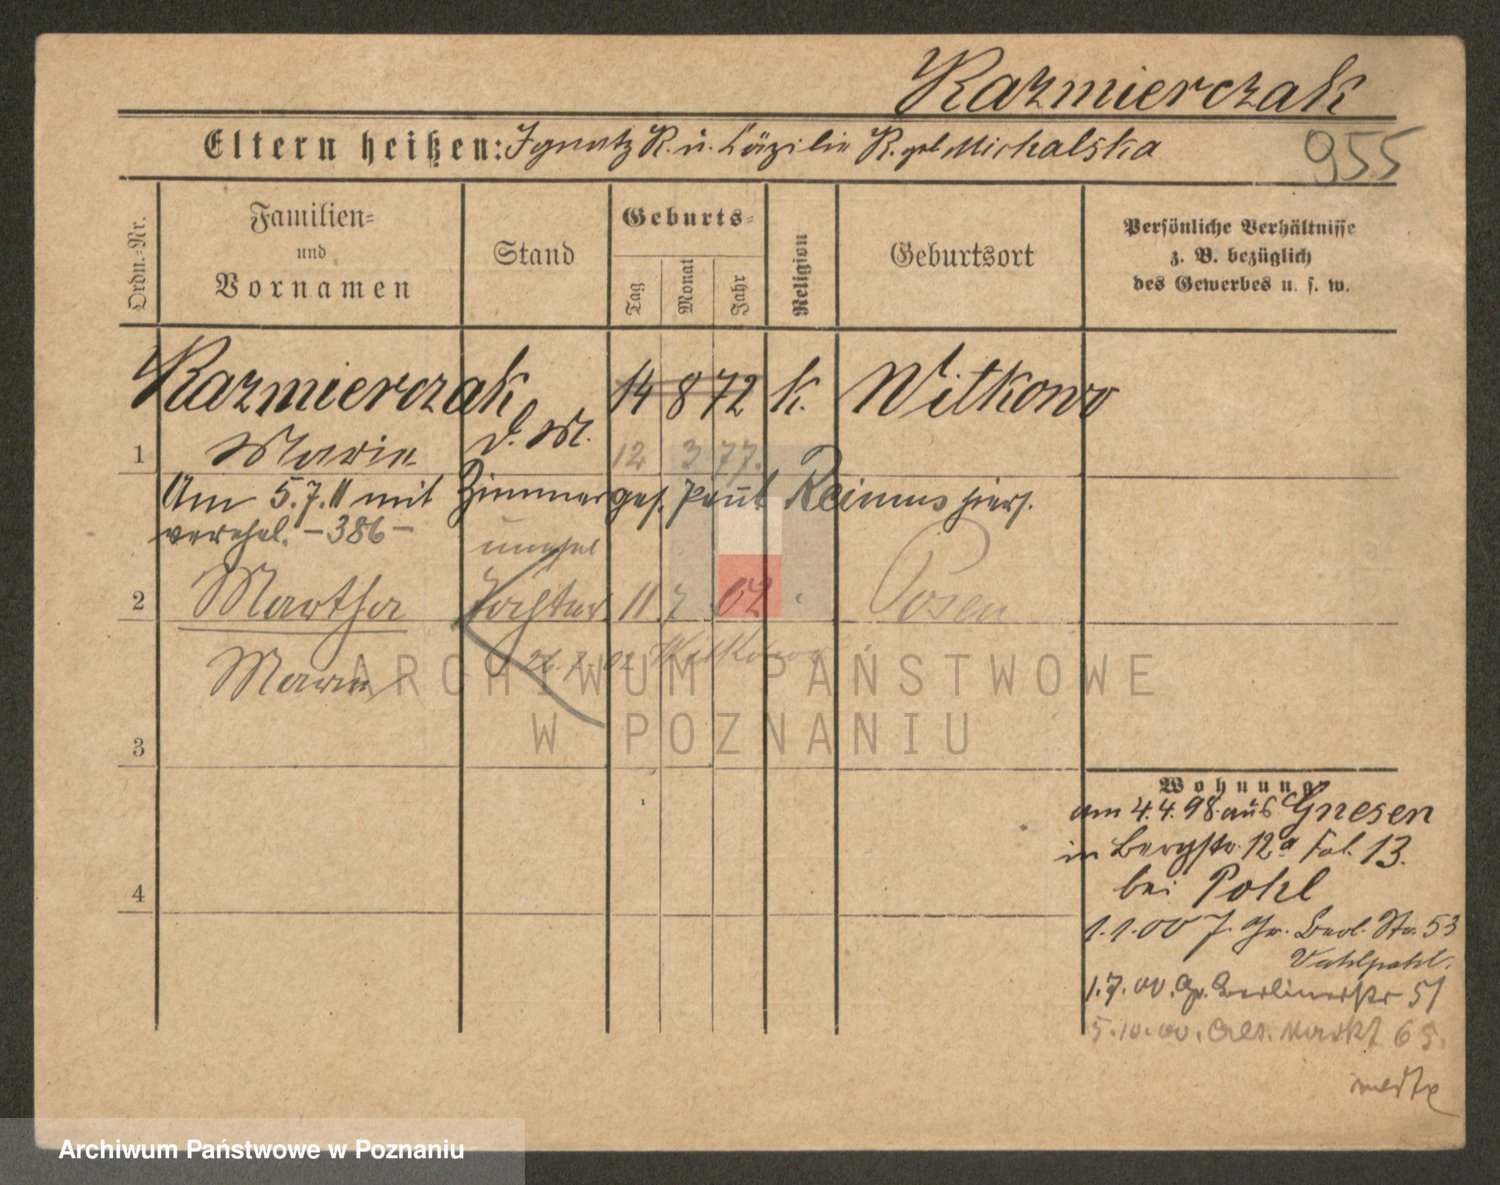 Kazmierczak
Eltern heißen: Ignatz K. u. Cäzilie K. geb. Michalska
955
Ordn.-Nr.
Familien-
und
Vornamen
Stand
Geburts-
Tag
Monat
Jahr
Religion
Geburtsort
Persönliche Verhältnisse
z. B. bezüglich
des Gewerbes u. s. w.
Kazmierczak 14 8 72 k. Witkowo
1 Marie d. M. 12 3 77.
Am 5.7.11 mit Zimmerges. Paul Reimus hiers.
verehel. -386-
unehel
2 Martha Tochter 11 7 02 Posen
Marie 26.7.02 Witkowo
ARCHIWUM PAŃSTWOWE
W POZNANIU
3
4
Wohnung
am 4.4.98 aus Gnesen
in Bergstr. 12a Fol. 13.
bei Pohl
1.1.00 Gr. Berl. Str. 53
1.7.00. Gr. Berlinerstr 51
5.10.00. Alt. Markt 65.
Archiwum Państwowe w Poznaniu